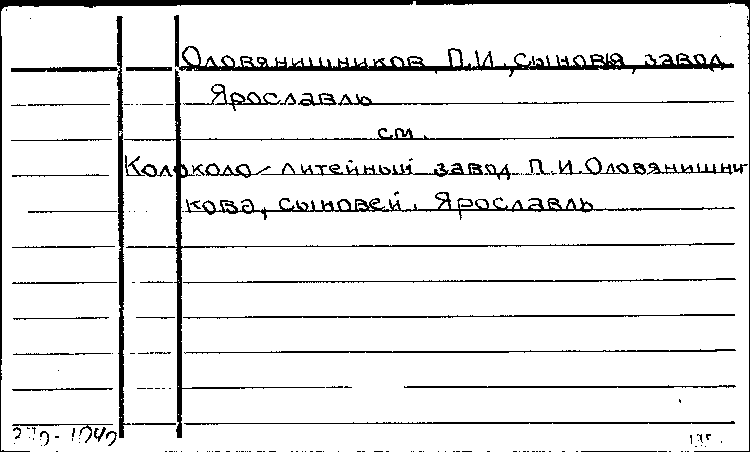 Оловянишников, П.И., сыновья, завод
Ярославль
см.
Колоколо-литейный завод П.И.Оловянишни
кова, сыновей. Ярославль